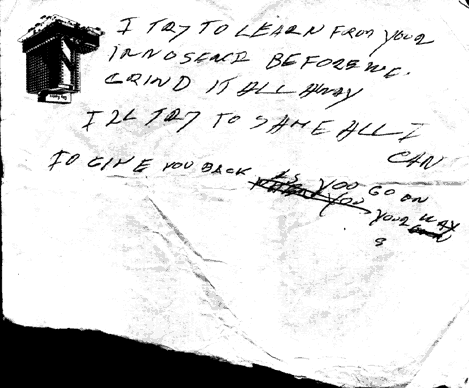 I TRY TO LEARN FROM YOUR
INNOSENCE BEFORE WE
GRIND IT ALL AWAY
I'LL TRY TO SAVE ALL I
CAN
TO GIVE YOU BACK AS YOU GO ON
YOU YOUR WAY